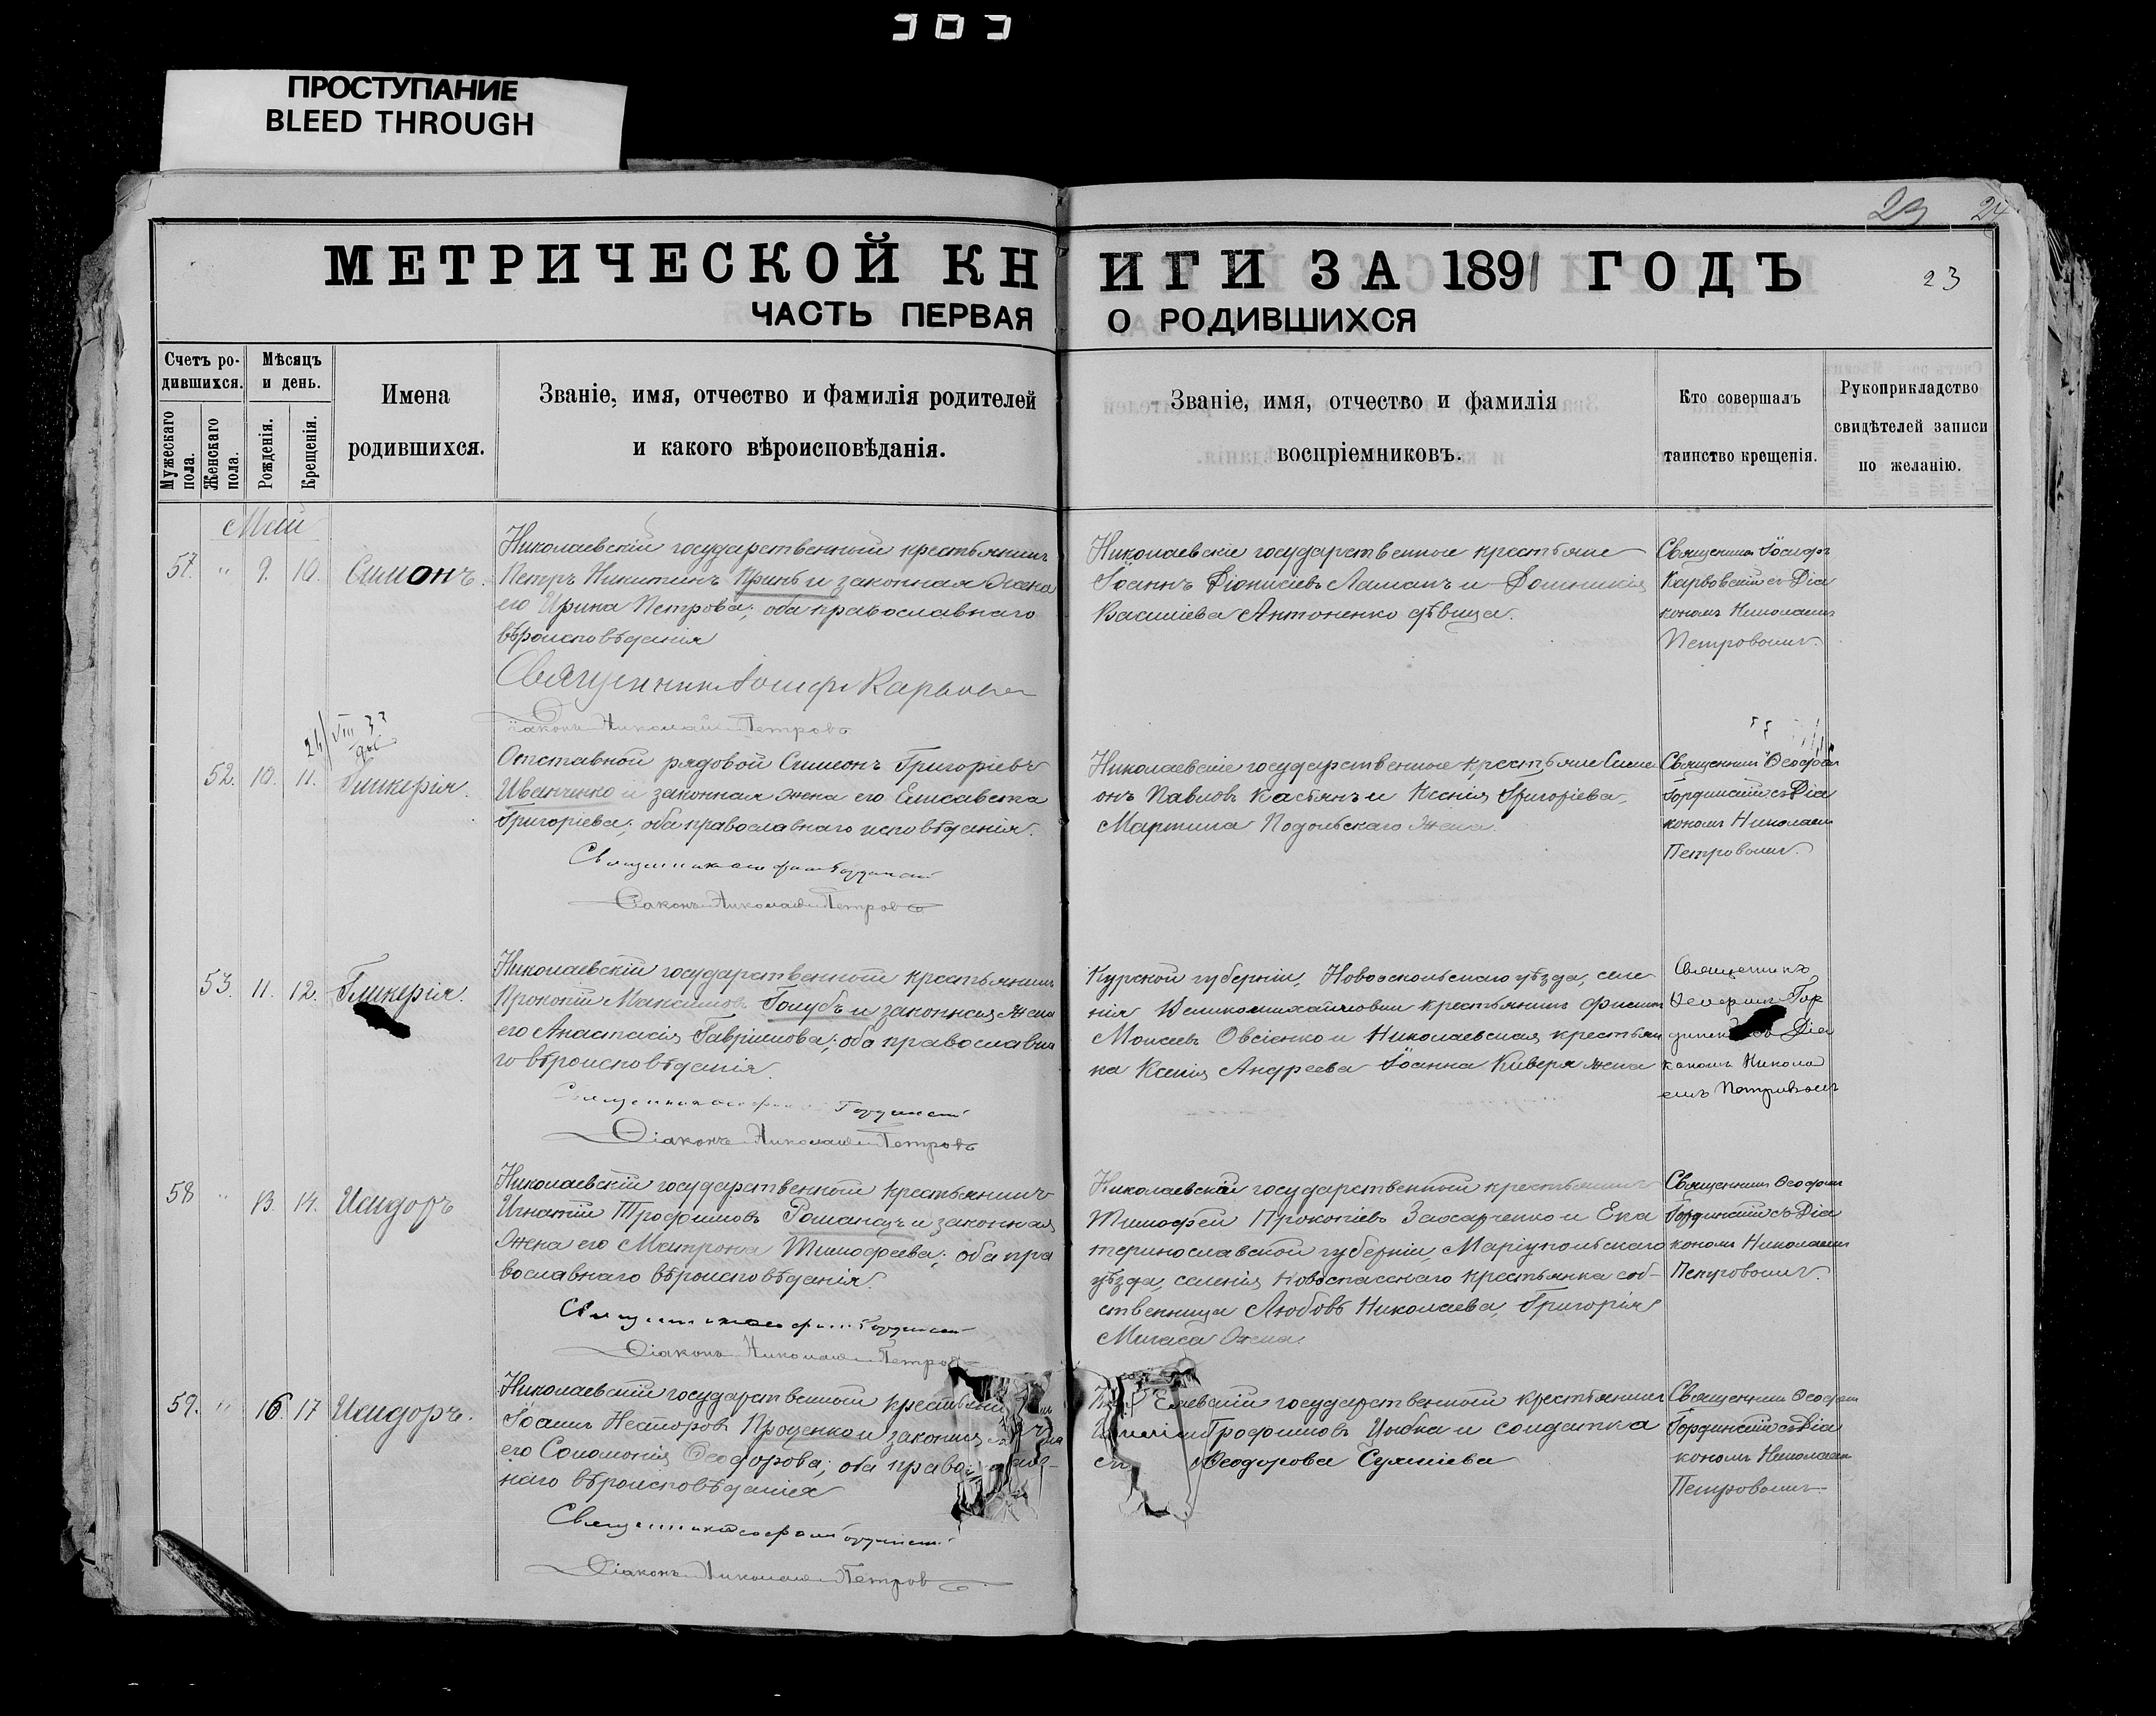 ПРОСТУПАНИЕ
BLEED THROUGH
23 24
МЕТРИЧЕСКОЙ КНИГИ ЗА 1891 ГОДЪ
23
ЧАСТЬ ПЕРВАЯ О РОДИВШИХСЯ
Счетъ ро-
дившихся.
Мужескаго
пола.
Женскаго
пола.
Мѣсяцъ
и день.
Рожденія.
Крещенія.
Имена
родившихся.
Званіе, имя, отчество и фамилія родителей
и какого вѣроисповѣданія.
Званіе, имя, отчество и фамилія
воспріемниковъ.
Кто совершалъ
таинство крещенія.
Рукоприкладство
свидѣтелей записи
по желанію.
Май
57. " 9. 10. Симонъ.
Николаевскій государственный крестьянинъ
Петръ Никитинъ Кринь и законная жена
его Ирина Петрова; оба православнаго
вѣроисповѣданія
Священникъ Іосифъ
Діаконъ Николай Петровъ
Николаевскіе государственные крестьяне
Іоаннъ Діонисіевъ Ламанъ и Домникія
Василіева Антоненко дѣвица.
Священникъ Іосифъ
Карвовскій съ Діа
кономъ Николаемъ
Петровымъ.
52. 10. 11. Гликерія.
Отставной рядовой Симеонъ Григоріевъ
Иванченко и законная жена его Елисавета
Григоріева; оба православнаго исповѣданія.
Священникъ
Діаконъ Николай Петровъ
Николаевскіе государственные крестьяне Симе
онъ Павловъ Касьянъ и Ксенія Григоріева,
Мартина Подольскаго жена.
Священникъ Ѳеофанъ
Гординскій съ Діа
кономъ Николаемъ
Петровымъ.
53. 11. 12. Гликерія.
Николаевскій государственный крестьянинъ
Прокопій Максимовъ Голубь и законная жена
его Анастасія Гавріилова; оба православна
го вѣроисповѣданія.
Гординскій
Діаконъ Николай Петровъ
Курской губерніи, Новооскольскаго уѣзда, селе
нія Великомихайловки крестьянинъ
Моисеевъ Овсіенко и Николаевская крестьян
ка Ксенія Андреева Іоанна Киверя жена
Священникъ
Діа
кономъ Никола
емъ Петровымъ
58 " 13. 14. Исидоръ
Николаевскій государственный крестьянинъ
Игнатій Трофимовъ Романецъ и законная
жена его Матрона Тимофеева; оба пра
вославнаго вѣроисповѣданія.
Священникъ
Діаконъ Николай Петровъ
Николаевскій государственный крестьянинъ
Тимофей Прокопіевъ Захарченко и Ека
теринославской губерніи, Маріупольскаго
уѣзда, селенія Новоспасскаго крестьянка соб-
ственница Любовь Николаева, Григорія
жена.
Священникъ Ѳеофанъ
Гординскій съ Діа
кономъ Николаемъ
Петровымъ.
59. " 16. 17 Исидоръ.
Николаевскій государственный
Іоаннъ Несторовъ Проценко и законная
его Соломонія Ѳеодорова; оба православ-
наго вѣроисповѣданія
Священникъ
Діаконъ Николай Петровъ
государственный крестьянинъ
Трофимовъ Цыбка и солдатка
Ѳеодорова
Священникъ Ѳеофанъ
Гординскій съ Діа
кономъ Николаемъ
Петровымъ.